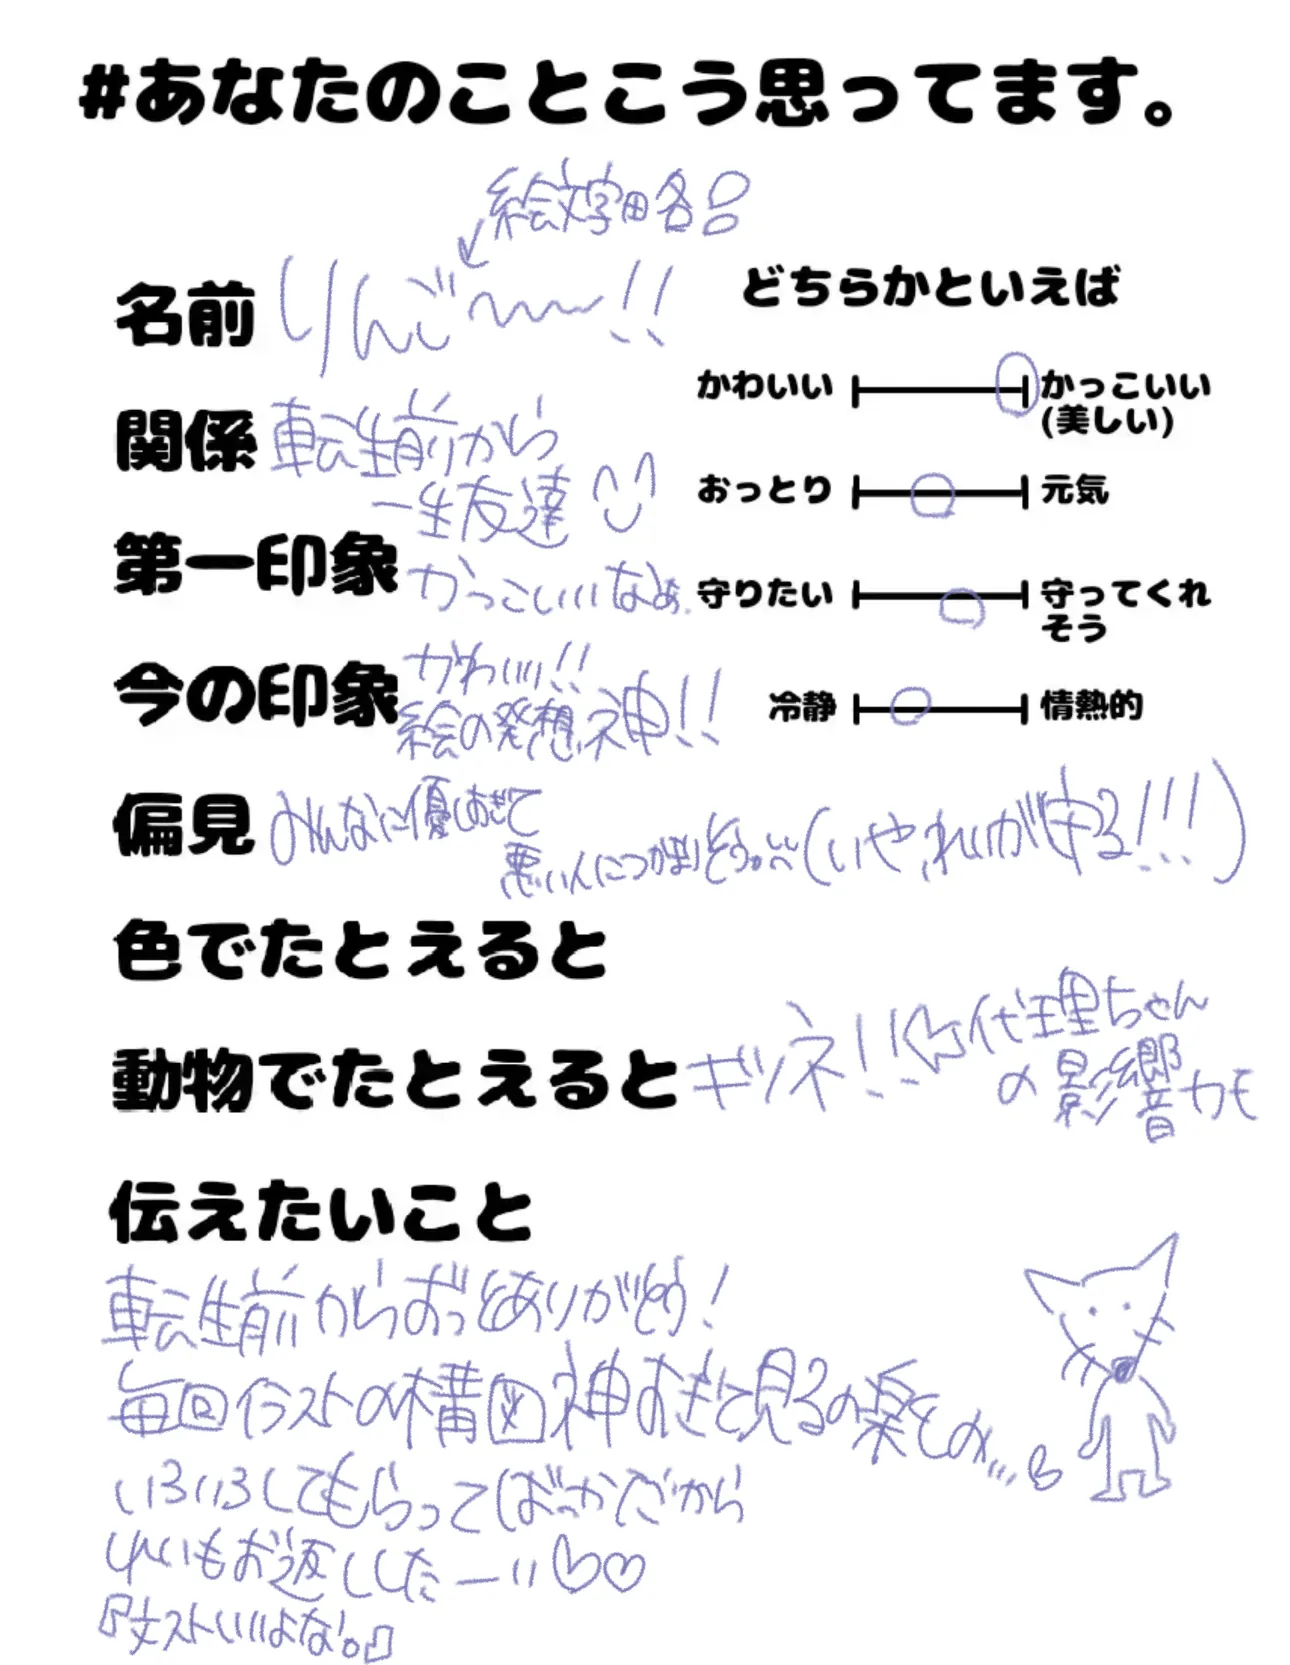 #あなたのことこう思ってます。
絵文字略
名前 りんご〜〜!!
関係 転生前から
一生友達
第一印象 かっこいいなぁ.
今の印象 かわいい!!
絵の発想神!!
偏見 みんなに優しすぎて
悪い人につかまりそう。(いやれいが守る!!!)
色でたとえると
動物でたとえると キツネ!!
代理ちゃん
の影響カモ
伝えたいこと
転生前からずっとありがとう!
毎回イラストの構図神すぎて見るの楽しみ…
いろいろしてもらってばっかだから
れいもお返ししたーい♡♡
『文ストいいよな。』
どちらかといえば
かわいい かっこいい
(美しい)
おっとり 元気
守りたい 守ってくれ
そう
冷静 情熱的